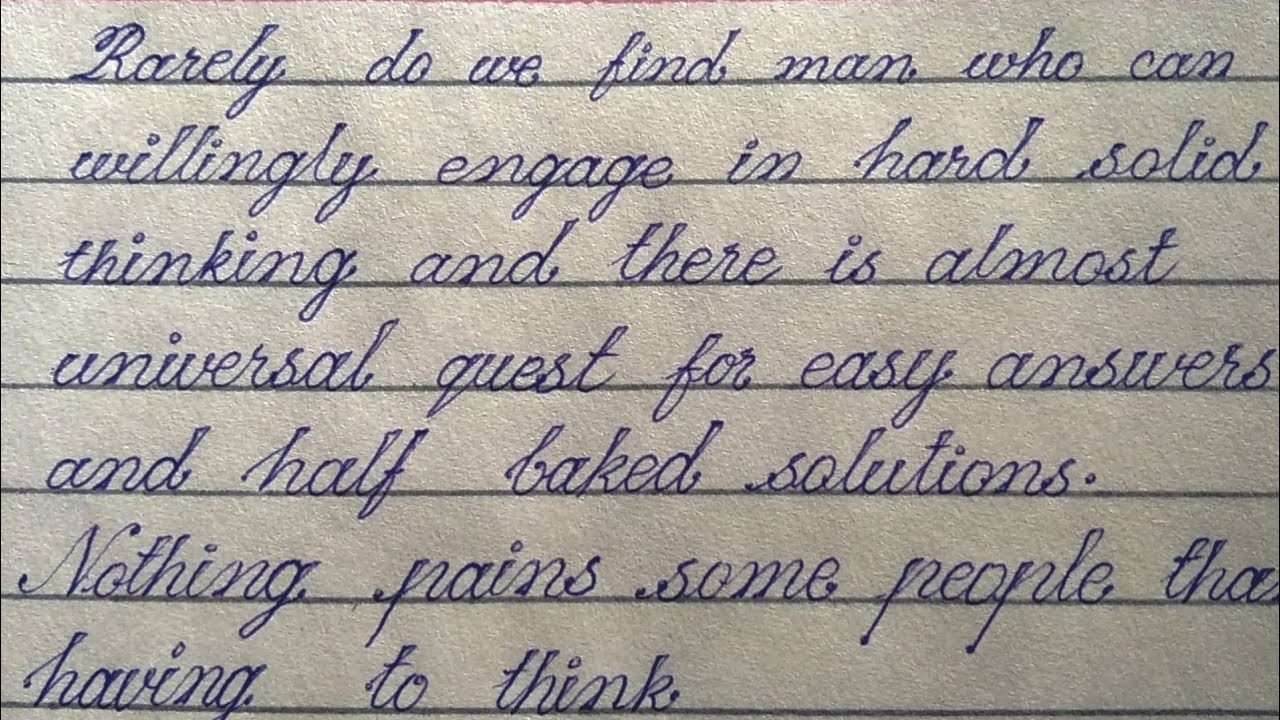 Rarely do we find man who can
willingly engage in hard solid
thinking and there is almost
universal quest for easy answers
and half baked solutions.
Nothing pains some people tha
having to think